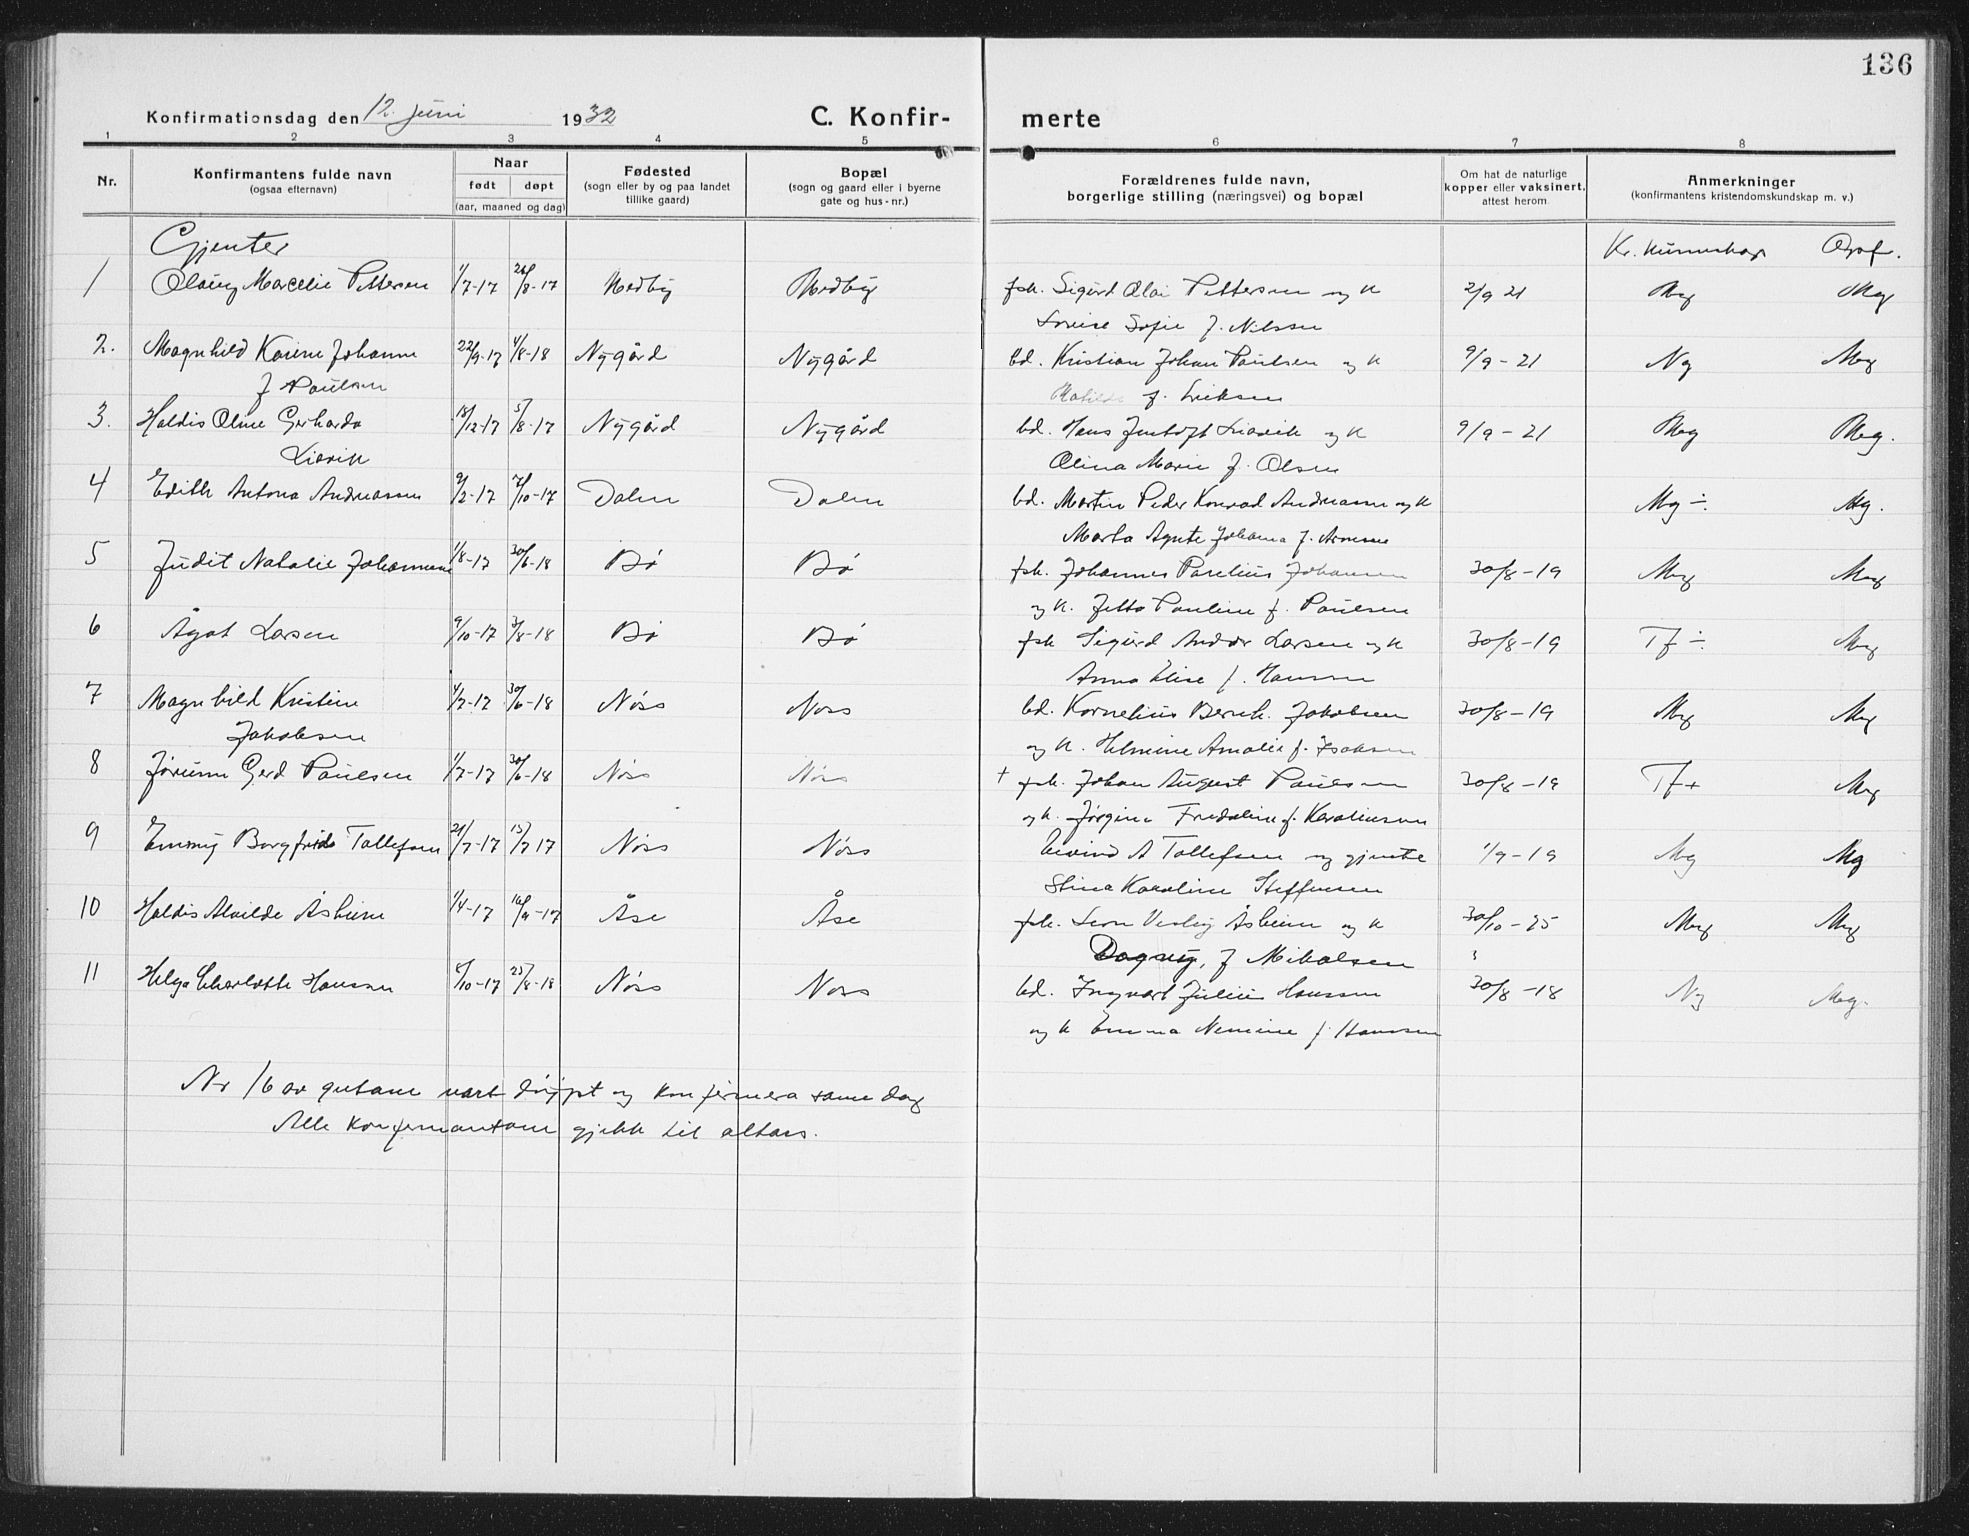 136
Konfirmationsdag den 12. juni 1932 C. Konfir- merte
1 2 3 4 5 6 7 8
Nr. Konfirmantens fulde navn (ogsaa efternavn) Naar født døpt (aar, maaned og dag) Fødested (sogn eller by og paa landet tillike gaard) Bopæl (sogn og gaard eller i byerne gate og hus-nr.) Forældrenes fulde navn, borgerlige stilling (næringsvei) og bopæl Om hat de naturlige kopper eller vaksinert, attest herom Anmerkninger (konfirmantens kristendomskundskap m. v.)
Gjenter Kr. kunnskap Opf.
1 Olaug Marcelie Pettersen 1/7-17 26/8-17 Medby Medby fsk. Sigurd Olai Pettersen og k 2/9 21 Mg Mg
Lovise Sofie f. Nilsen
2. Magnhild Karine Johanne 22/9-17 4/8-18 Nygård Nygård bd. Kristian Johan Paulsen og k 9/9-21 Ng Mg
f Paulsen Matilde f. Eriksen
3. Haldis Oline Gerharda 18/12-17 5/8-17 Nygård Nygård bd. Hans Justoft Liavik og k 9/9-21 Mg Meg.
Liavik Olina Marie f. Olsen
4 Edith Antona Andreassen 9/2-17 7/10-17 Dalen Dalen bd. Martin Peder Konrad Andreassen og k Mg ÷ Mg.
Marta Agnete Johanna f. Arnesen
5 Judit Natalie Johannesen 1/8-17 30/6-18 Bø Bø fsk. Johannes Parelius Johansen 30/8-19 Mg Mg
og k. Jetta Pauline f. Paulsen
6 Ågot Larsen 9/10-17 3/8-18 Bø Bø fsk Sigurd Andor Larsen og k 30/8-19 Tf ÷ Mg
Anna Elise f. Hanssen
7 Magnhild Kristine 4/7-17 30/6-18 Nöss Noss bd. Kornelius Bernh. Jakobsen 30/8-19 Mg Mg
Jakobsen og k. Helmine Amalie f. Isaksen
8 Jørunn Gerd Paulsen 1/7-17 30/6-18 Nöss Nöss + fsk. Johan August Paulsen 30/8-19 Tf+ Mg
og k. Jørgine Fredeline f. Karoliussen
9 Emmy Borgfrid Tollefsen 21/7-17 15/7 17 Nöss Nöss Eivind A Tollefsen og gjente 1/9-19 Mg Mg
Stina Karoline Steffensen
10 Haldis Alvilde Åsheim 1/4-17 16/9-17 Åse Åse fsk. Leon Verley Åsheim og k 30/10-25 Mg Mg
Dagny, f Mikalsen
11 Helga Charlotte Hanssen 5/10-17 25/8-18 Nöss Noss bd. Ingvart Julius Hanssen 30/8-18 Ng Meg.
og k Emma Nemine f. Hanssen
Nr 16 av gutane vart döypt og konfirmera same dag
Alle konfirmantane gjekk til altars.